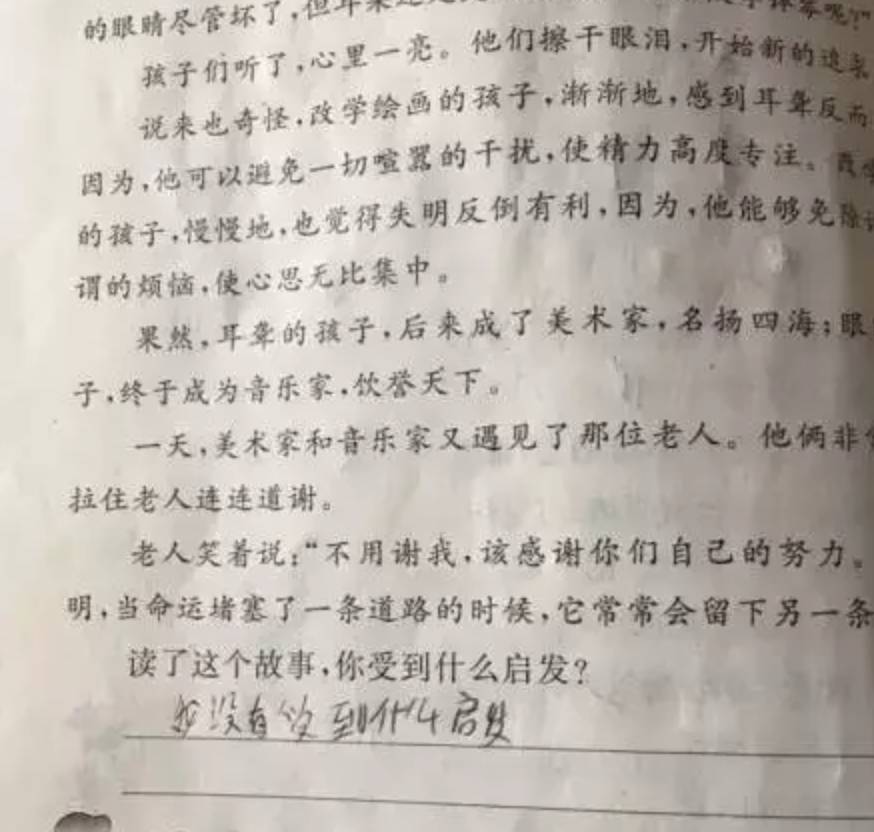 的眼睛尽管坏了,但耳朵还
孩子们听了,心里一亮。他们擦干眼泪,开始新的追求
说来也奇怪,改学绘画的孩子,渐渐地,感到耳聋反而
因为,他可以避免一切喧嚣的干扰,使精力高度专注。改学
的孩子,慢慢地,也觉得失明反倒有利,因为,他能够免除许
谓的烦恼,使心思无比集中。
果然,耳聋的孩子,后来成了美术家,名扬四海;眼
子,终于成为音乐家,饮誉天下。
一天,美术家和音乐家又遇见了那位老人。他俩非
拉住老人连连道谢。
老人笑着说:“不用谢我,该感谢你们自己的努力。
明,当命运堵塞了一条道路的时候,它常常会留下另一条
读了这个故事,你受到什么启发?
我没有受到什么启发